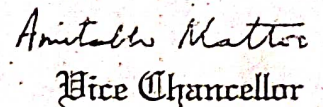 Amitabh Mattoo
Vice Chancellor